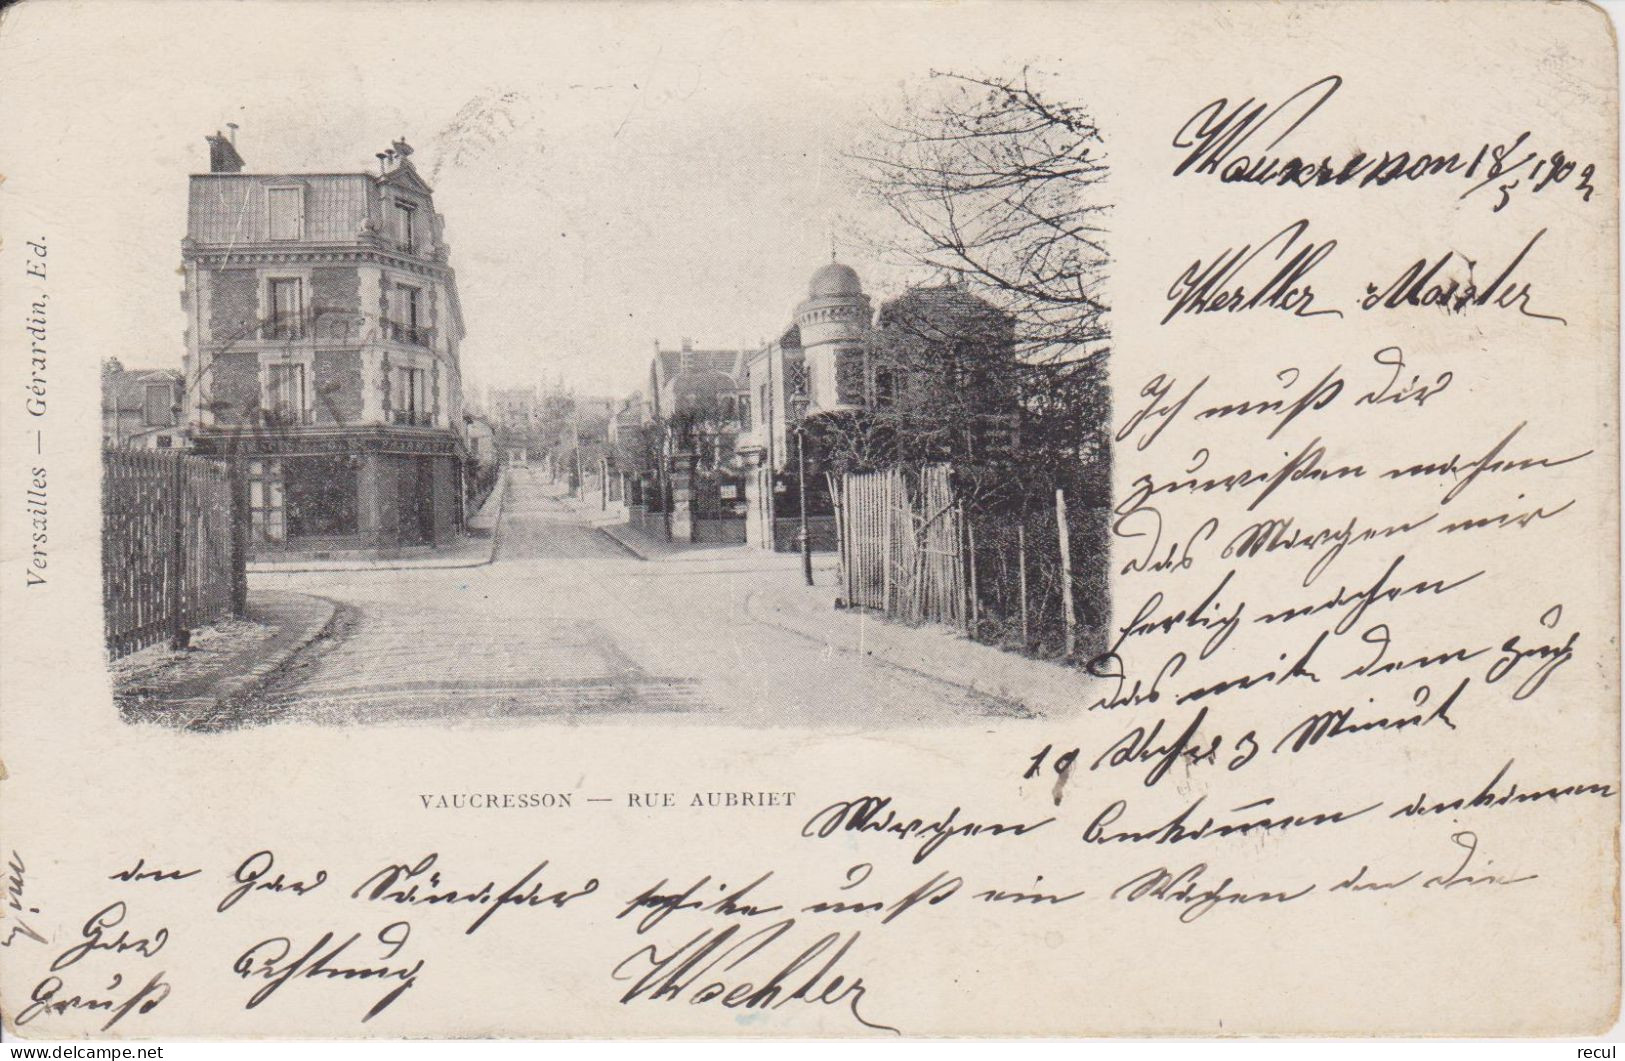 Versailles — Gérardin, Ed.
VAUCRESSON — RUE AUBRIET
Waucresson 18/5 1902
Werther Meister
Ich muß dir
zuwißen machen
das Morgen wir
fertig machen
das mit dem Zug
10 Uhr 3 Minut
Morgen ankommen
an Gar schike uns ein Wagen an die
Gar
Gruß Achtung Wachter
recul